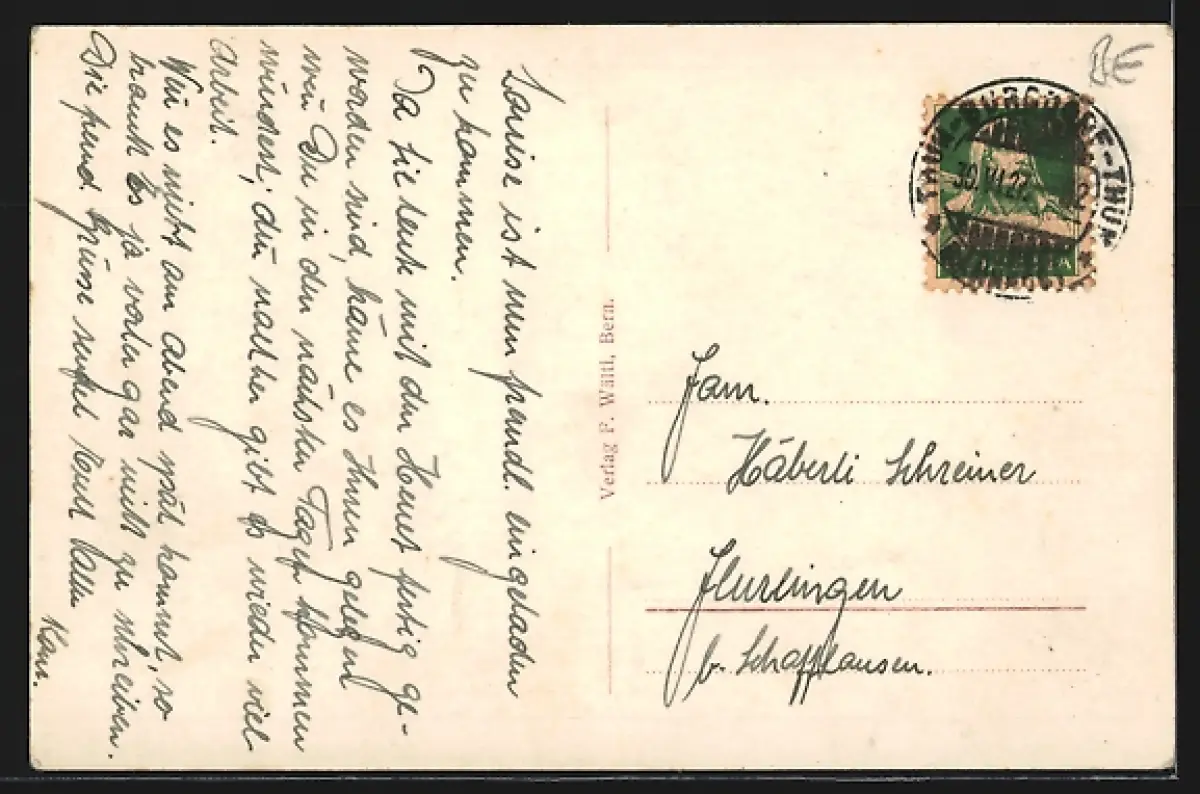 Louise ist nun freundl. eingeladen
zu kommen.
Da sie heute mit den Heuet fertig ge-
worden sind, käme es Ihnen gelegen
wen Du in den nächsten Tagen kommen
würdest; den nachher gibt es wieder viel
Arbeit.
Wen es nicht am Abend spät kommt, so
braucht es ja vorher gar nicht zu schreiben.
Die freund. Grüsse sendet Euch allen
Verlag F. Wältl, Bern.
BE
THUN-BURGDORF-THUN
30.VII.22
Fam.
Häberli Schreiner
Flurlingen
b. Schaffhausen.